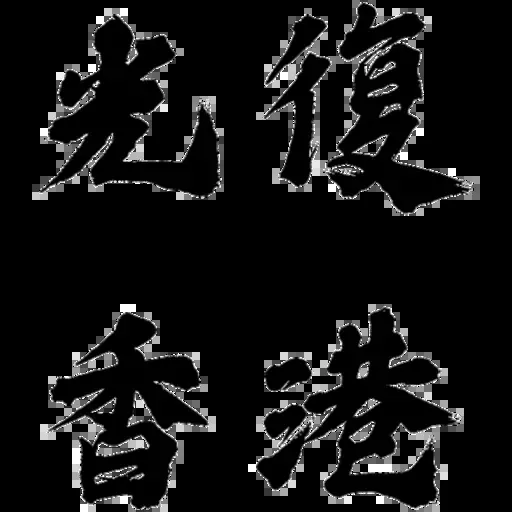 光復
香港